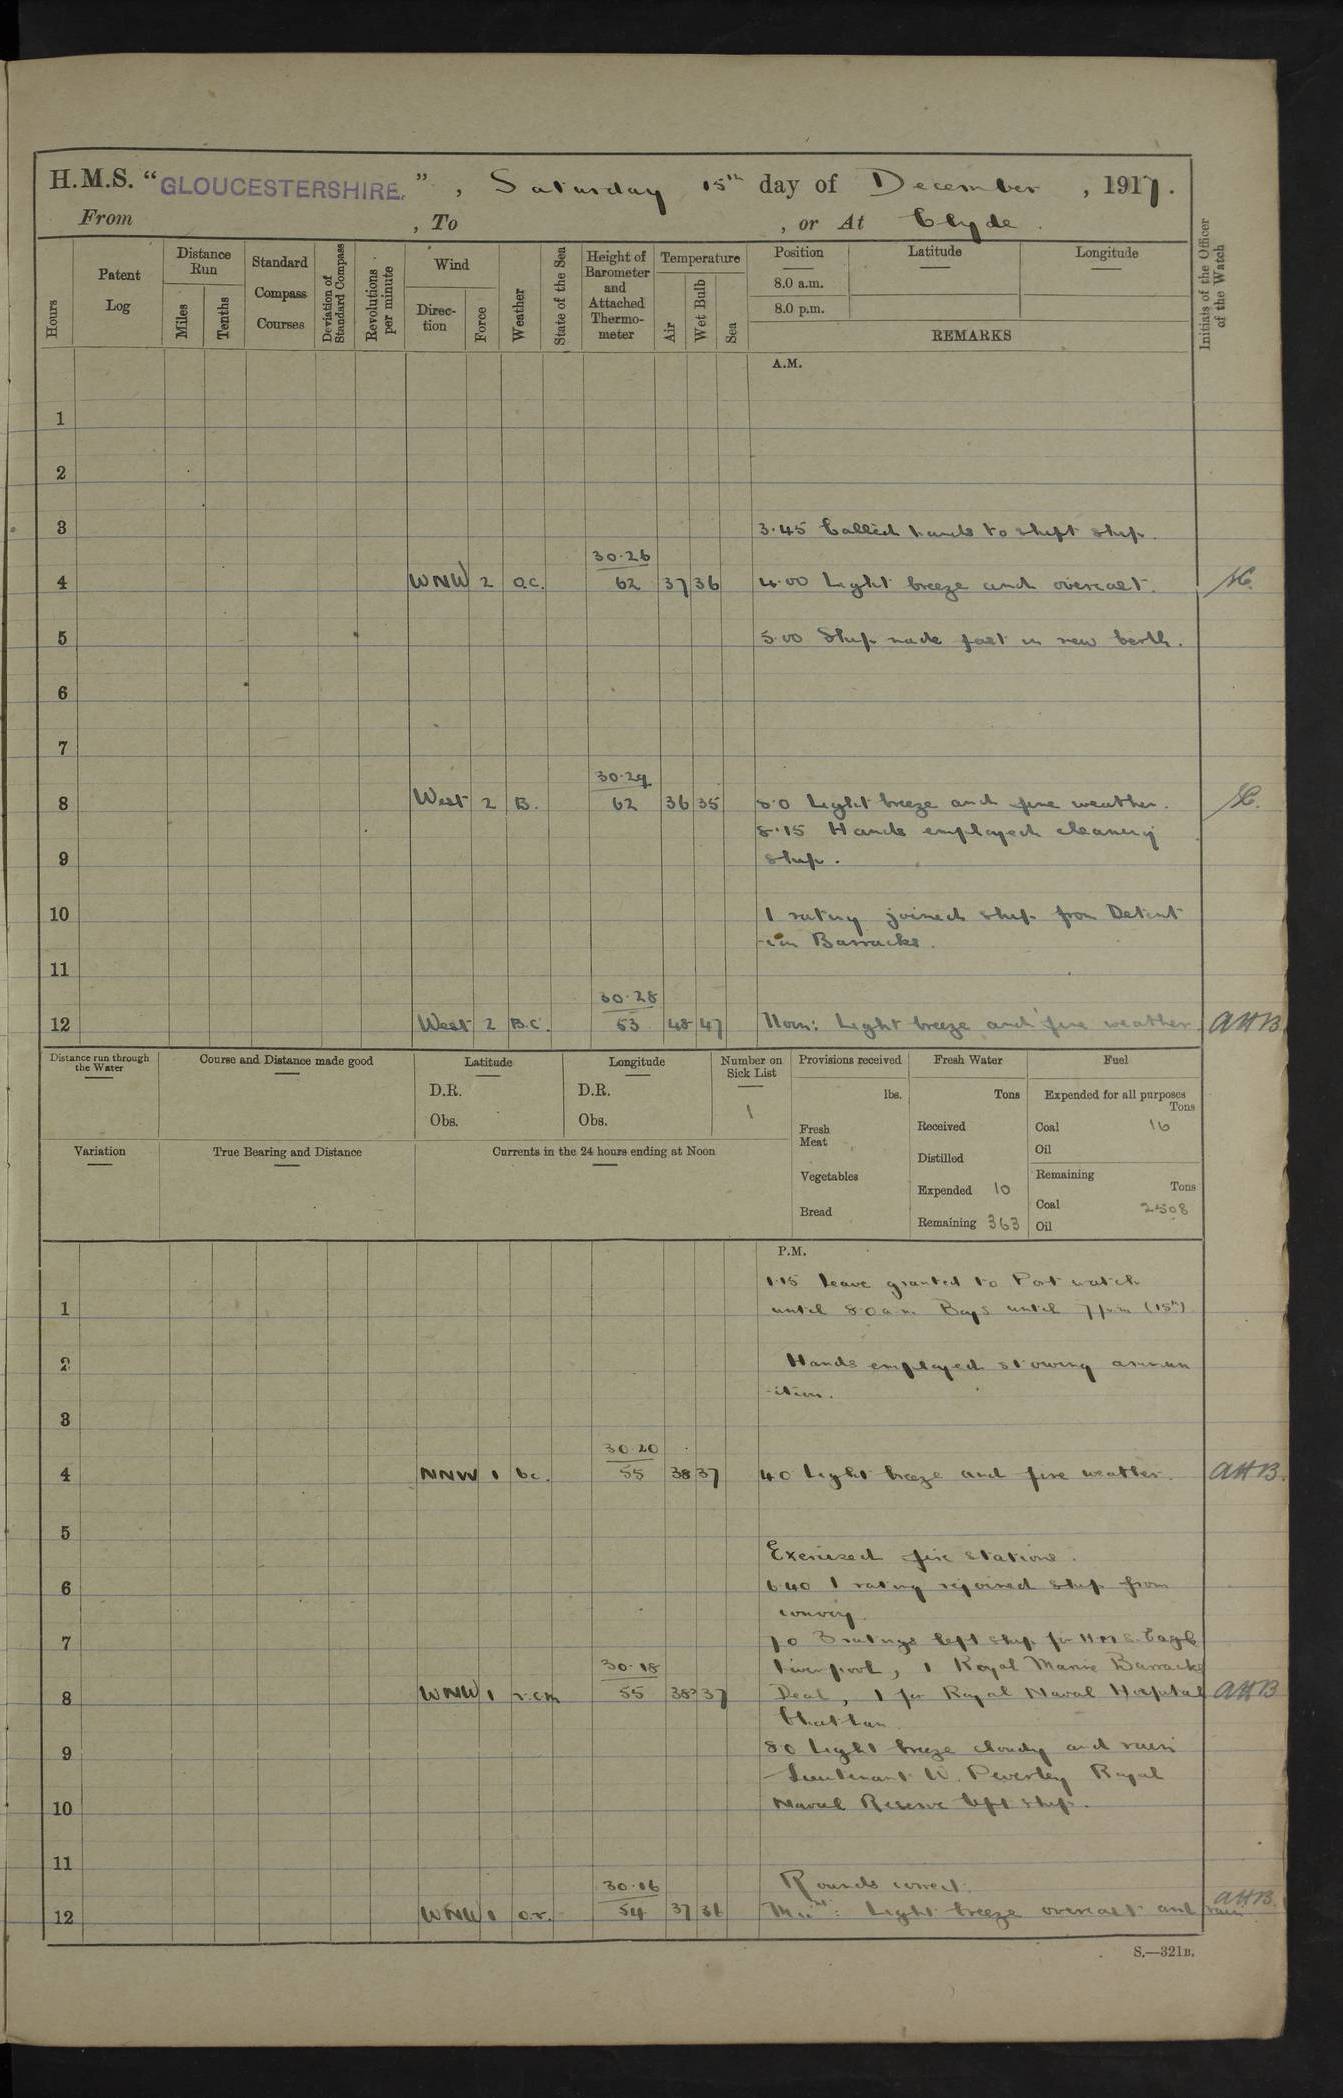 H.M.S. "GLOUCESTERSHIRE.", Saturday 15th day of December, 1917.
From , To , or At Clyde.
Hours
Patent Log
Distance Run
Miles
Tenths
Standard Compass Courses
Deviation of Standard Compass
Revolutions per minute
Wind
Direction
Force
Weather
State of the Sea
Height of Barometer and Attached Thermometer
Temperature
Air
Wet Bulb
Sea
Position
8.0 a.m.
8.0 p.m.
Latitude
Longitude
REMARKS
Initials of the Officer of the Watch
A.M.
1
2
3 3.45 Called hands to shift ship.
30.26
4 WNW 2 o.c. 62 37 36 4.00 Light breeze and overcast.
5 5.00 Ship made fast in new berth.
6
7
30.29
8 West 2 B. 62 36 35 8.0 Light breeze and fine weather.
8.15 Hands employed cleaning
9 ship.
10 1 rating joined ship from Detent
-ion Barracks.
11
30.28
12 West 2 B.C. 53 48 47 Noon: Light breeze and fine weather AHB
Distance run through the Water
Course and Distance made good
Latitude
D.R.
Obs.
Longitude
D.R.
Obs.
Number on Sick List
1
Provisions received
lbs.
Fresh Meat
Vegetables
Bread
Fresh Water
Tons
Received
Distilled
Expended 10
Remaining 363
Fuel
Expended for all purposes
Tons
Coal 16
Oil
Remaining
Tons
Coal 2508
Oil
Variation
True Bearing and Distance
Currents in the 24 hours ending at Noon
P.M.
1.15 Leave granted to Port watch
1 until 8.0 a.m. Boys until 7 p.m. (15th)
2 Hands employed stowing ammun
-ition.
3
30.20
4 NNW 1 bc. 55 38 37 4.0 Light breeze and fine weather. AHB.
5
Exercised fire stations.
6 6.40 1 rating rejoined ship from
convoy.
7 7.0 3 ratings left ship for H.M.S. Eagle
30.18 Liverpool, 1 Royal Marine Barracks
8 WNW 1 r.c.m 55 38 37 Deal, 1 for Royal Naval Hospital AHB
Chatham.
9 8.0 Light breeze cloudy and rain
Lieutenant W. Peverley Royal
10 Naval Reserve left ship.
11
30.16 Rounds correct.
12 WNW 1 o.r. 54 37 36 Midt: Light breeze overcast and rain AHB.
S.—321B.